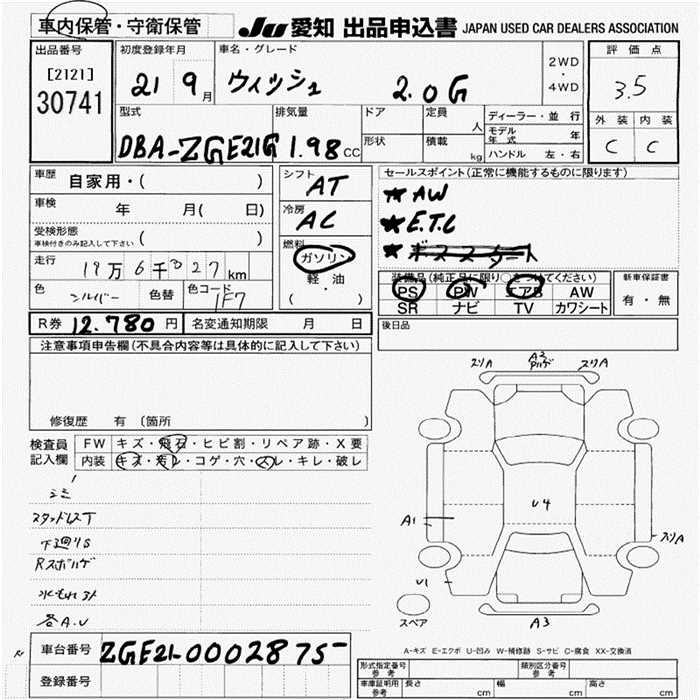 車内保管・守衛保管
JU 愛知 出品申込書 JAPAN USED CAR DEALERS ASSOCIATION
出品番号
[2121]
30741
初度登録年月
21 9月
車名・グレード
ウィッシュ 2.0G
2WD
・
4WD
評価点
3.5
外装 内装
C C
型式
DBA-ZGE21G
排気量
1.98 CC
ドア
形状
定員
人
積載
kg
ディーラー・並行
モデル年式 年
ハンドル 左・右
車歴 自家用・( )
車検 年 月( 日)
受検形態
車検付きのみ記入して下さい ( )
走行 19万6千827km
色 シルバー 色替 色コード 1F7
シフト
AT
冷房
AC
燃料
ガソリン
軽・油
( ・ )
セールスポイント(正常に機能するものに限ります)
★AW
★E.T.C
装備品(純正品に限り○をつけてください)
PS PW エアB AW
SR ナビ TV カワシート
新車保証書
有・無
後日品
R券 12.780円 名変通知期限 月 日
注意事項申告欄(不具合内容等は具体的に記入して下さい)
修復歴 有 (箇所
検査員
記入欄
FW キズ・飛石・ヒビ割・リペア跡・X要
内装 キズ・汚レ・コゲ・穴・スレ・キレ・破レ
シミ
スタッドレスT
下廻りS
Rスポハゲ
水もれ
各A.U
スリA A3 スリA
ハゲ
U4
A1
スリA
U1
スペア
A3
A-キズ E-エクボ U-凹み W-補修跡 S-サビ C-腐食 XX-交換済
車台番号 ZGE21-0002875
登録番号
形式指定番号
参考
類別区分番号
参考
車庫証明用
参考
長さ cm 幅 cm 高さ cm